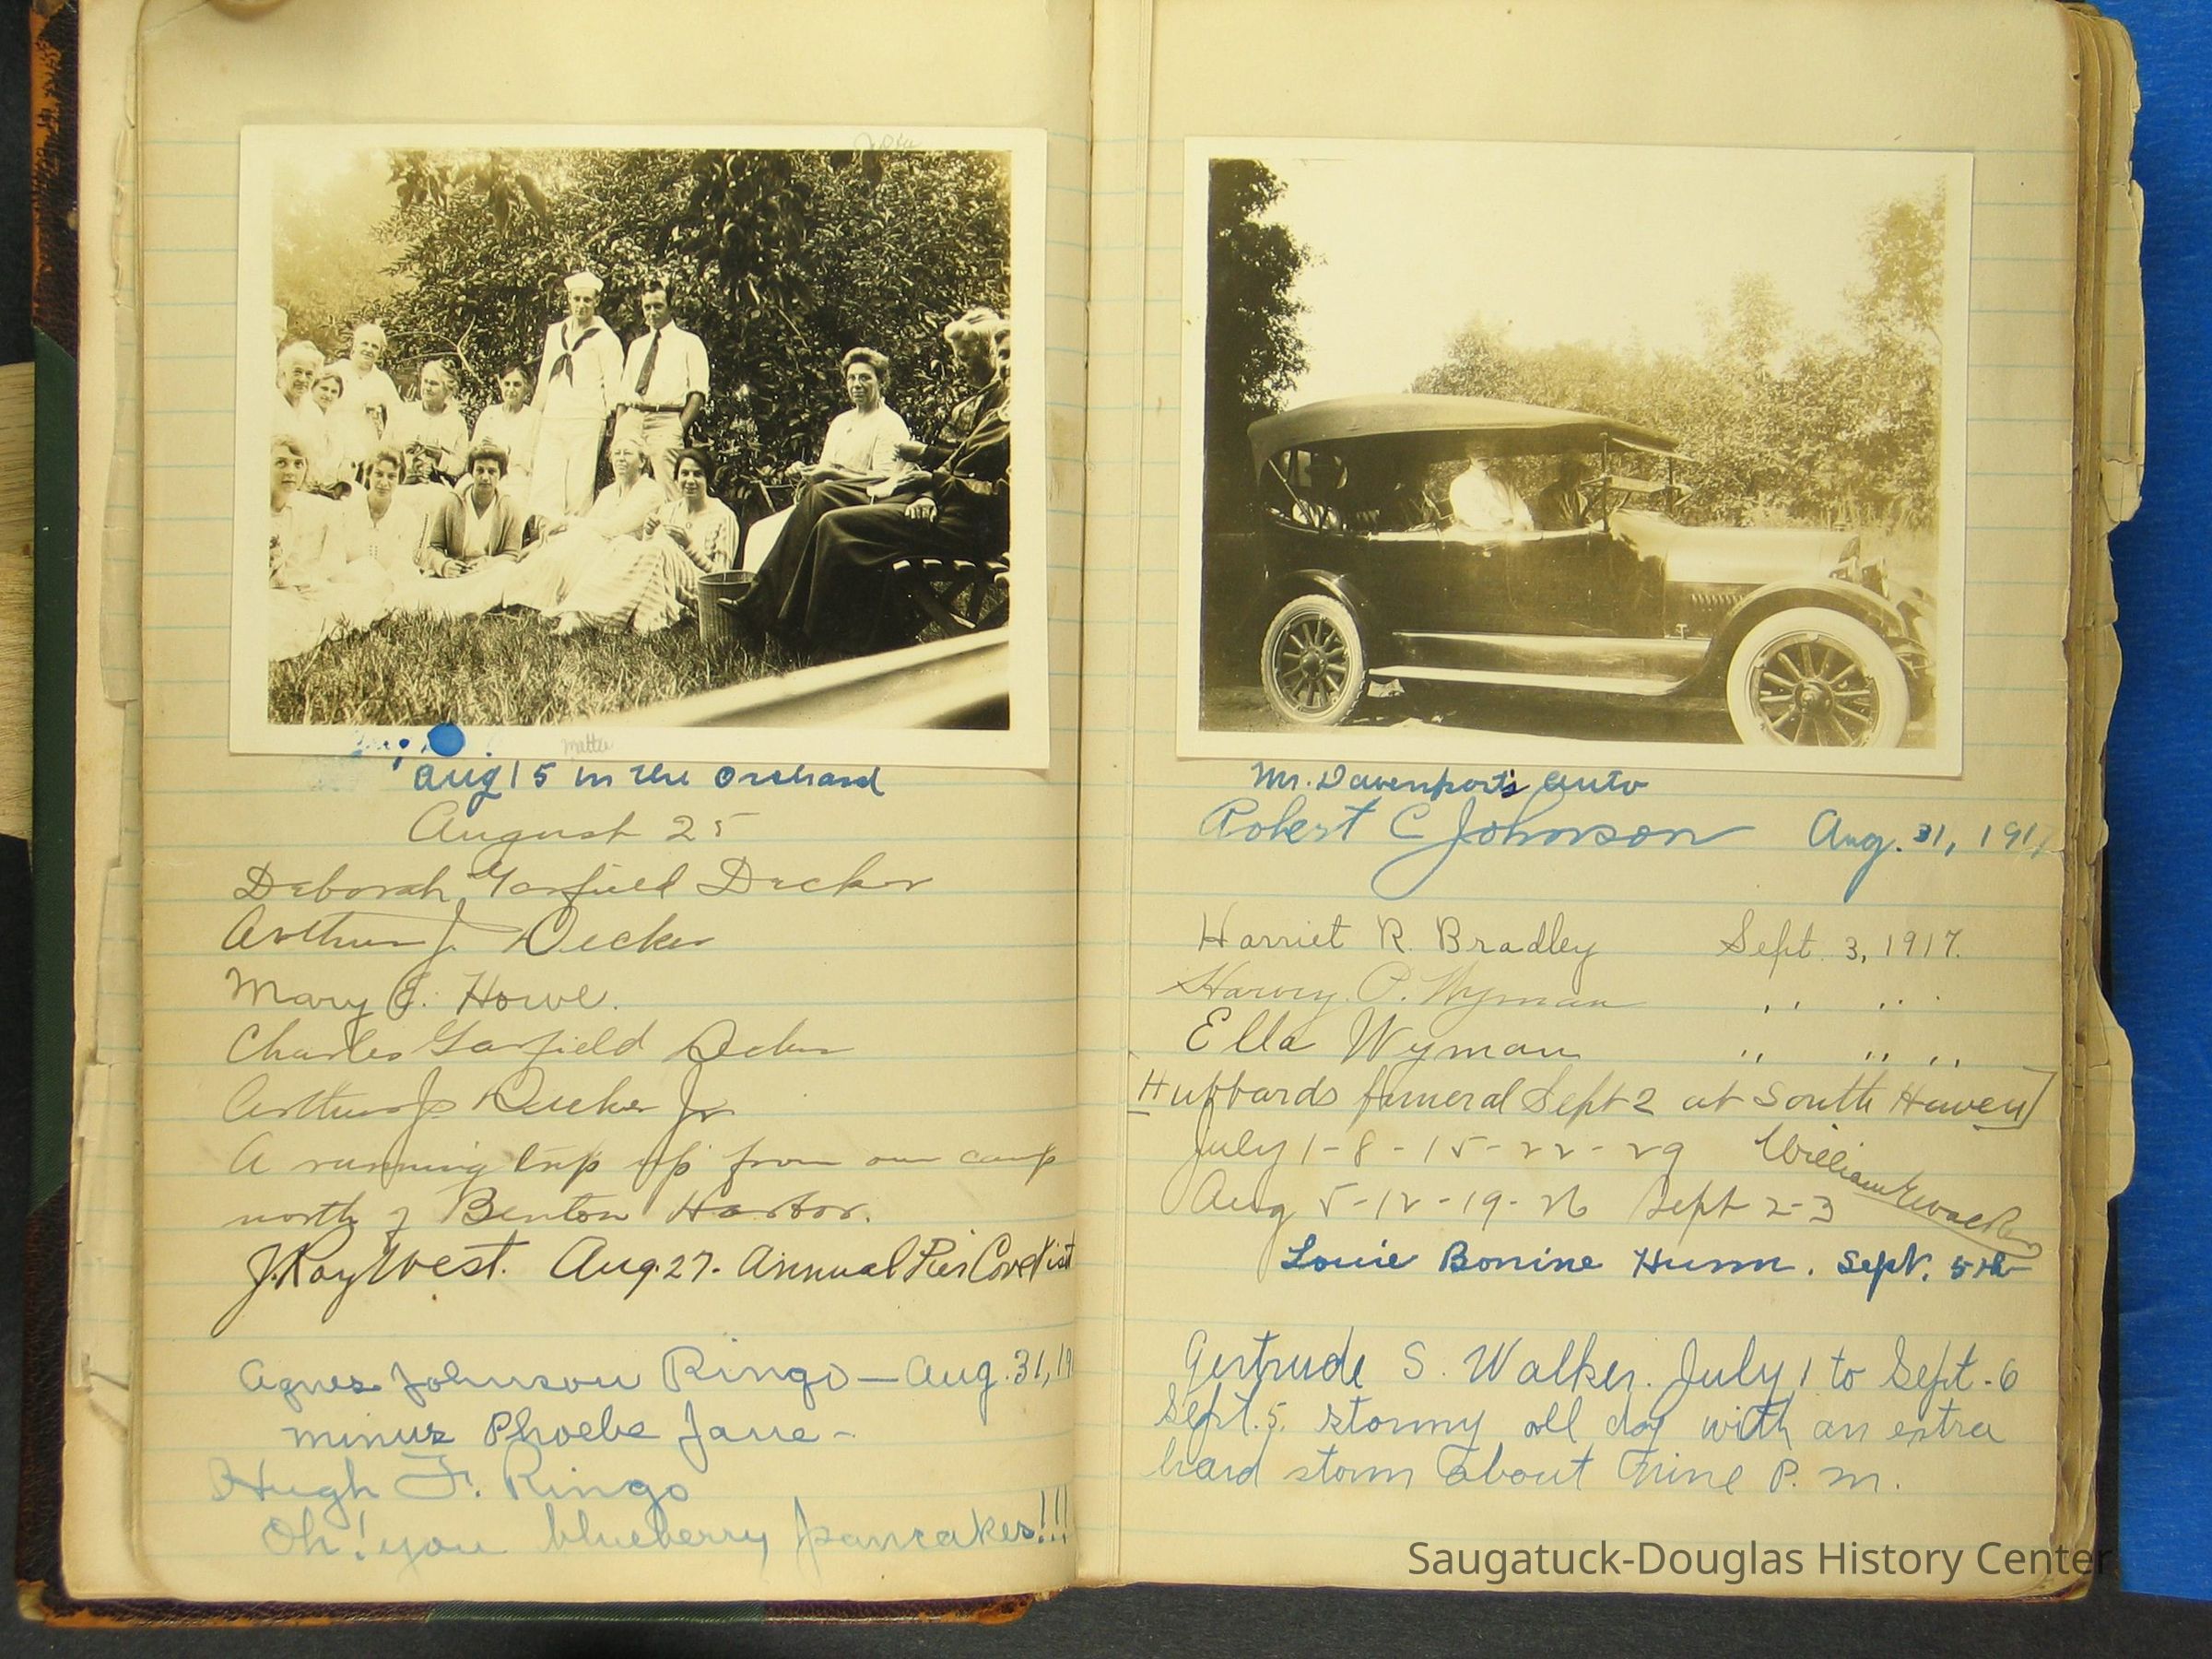 Mattie
Aug 15 in the Orchard
August 25
Deborah Garfield Decker
Arthur J. Decker
Mary E. Howe.
Charles Garfield Decker
Arthur J. Decker Jr
A running trip up from our camp
north of Benton Harbor.
J. Ray West. Aug. 27. Annual Pier Cove Visit
Agnes Johnson Ringo — Aug. 31, 19
minus Phoebe Jane -
Hugh F. Ringo
Oh! you blueberry pancakes!!!
Mr. Davenport's auto
Robert C Johnson Aug. 31, 191
Harriet R. Bradley Sept. 3, 1917.
Harvey P. Wyman ,, ,, ,,
Ella Wyman ,, ,, ,,
[Hubbards funeral Sept 2 at South Haven]
July 1-8-15-22-29 William
Aug 5-12-19-26 Sept 2-3
Louie Bonine Hunn. Sept. 5th
Gertrude S. Walker. July 1 to Sept. 6
Sept. 5. stormy all day with an extra
hard storm about nine P. M.
Saugatuck-Douglas History Center